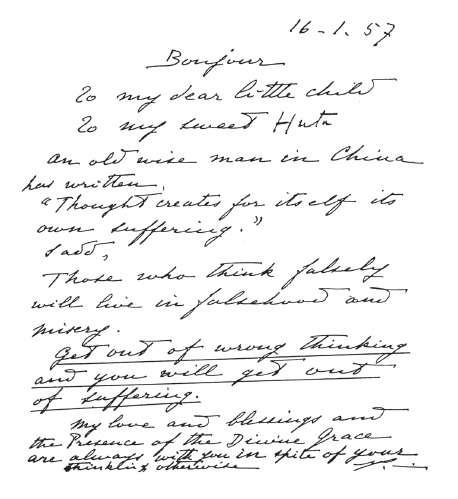 16-1.57
Bonjour
To my dear little child
To my sweet Huta
an old wise man in China
has written,
"Thought creates for itself its
own suffering."
I add,
Those who think falsely
will live in falsehood and
misery.
Get out of wrong thinking
and you will get out
of suffering.
My love and blessings and
the Presence of the Divine Grace
are always with you in spite of your
thinking otherwise